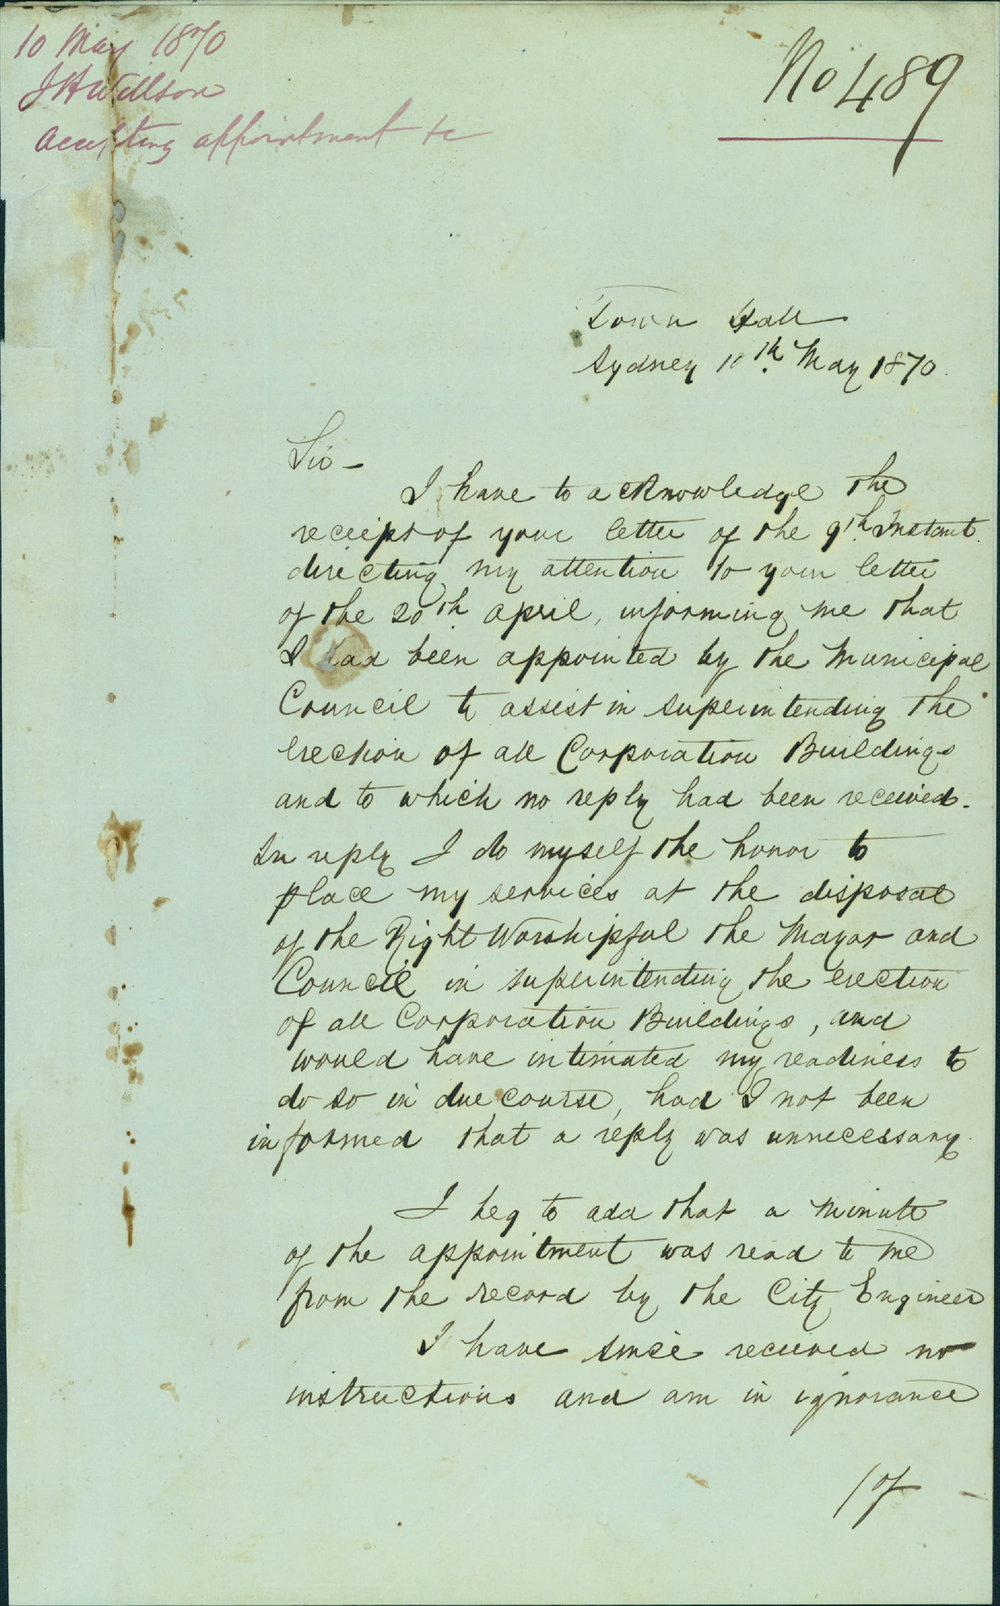 10 May 1870
J H Willson
accepting appointment &c
No 489
Town Hall
Sydney 10th May 1870.
Sir –
I have to acknowledge the
receipt of your letter of the 9th Instant.
directing my attention to your letter
of the 20th april, informing me that
I had been appointed by the Municipal
Council to assist in superintending the
erection of all Corporation Buildings
and to which no reply had been received.
In reply I do myself the honor to
place my services at the disposal
of the Right Worshipful the Mayor and
Council in superintending the erection
of all Corporation Buildings, and
would have intimated my readiness to
do so in due course, had I not been
informed that a reply was unnecessary.
I beg to add that a minute
of the appointment was read to me
from the record by the City Engineer
I have since received no
instructions and am in ignorance
/of